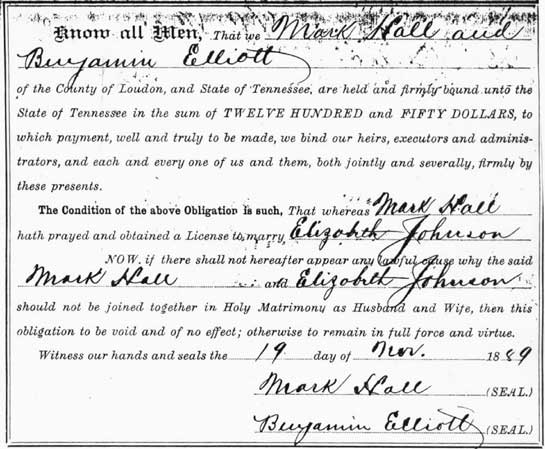 Know all Men, That we Mark Hall and
Benjamin Elliott
of the County of Loudon, and State of Tennessee, are held and firmly bound unto the
State of Tennessee in the sum of TWELVE HUNDRED and FIFTY DOLLARS, to
which payment, well and truly to be made, we bind our heirs, executors and adminis-
trators, and each and every one of us and them, both jointly and severally, firmly by
these presents.
The Condition of the above Obligation is such, That whereas Mark Hall
hath prayed and obtained a License to marry, Elizabeth Johnson
NOW, if there shall not hereafter appear any lawful cause why the said
Mark Hall and Elizabeth Johnson
should not be joined together in Holy Matrimony as Husband and Wife, then this
obligation to be void and of no effect; otherwise to remain in full force and virtue.
Witness our hands and seals the 19 day of Nov. 1889
Mark Hall (SEAL.)
Benjamin Elliott (SEAL.)